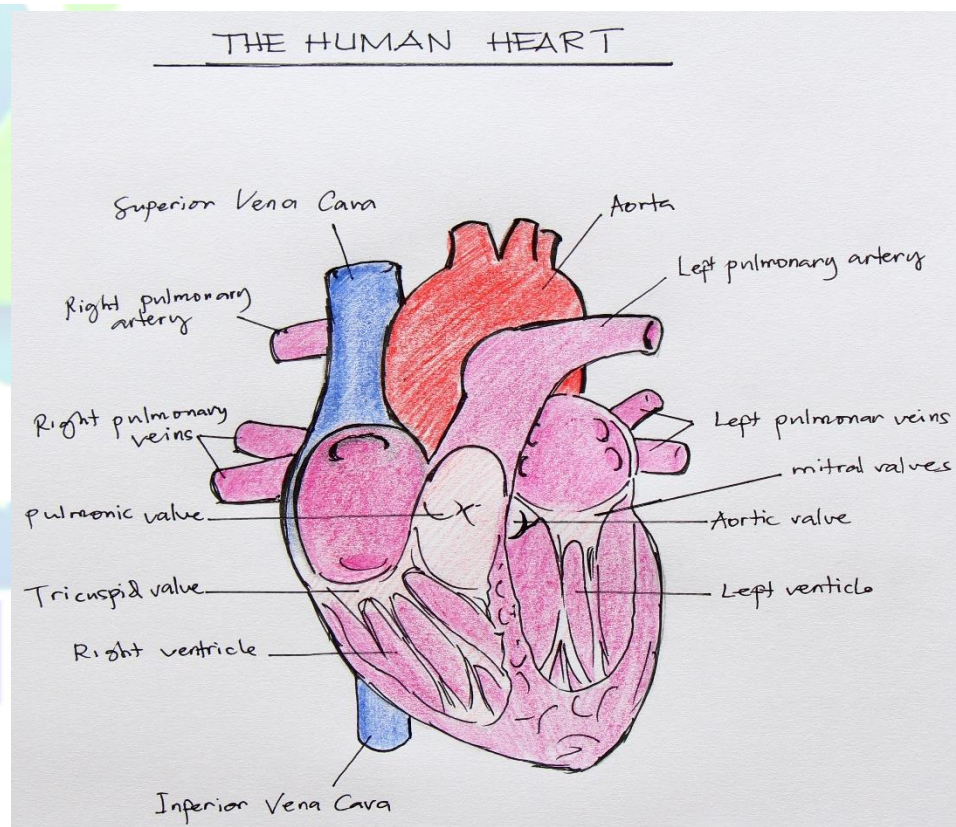 THE HUMAN HEART
Superior Vena Cava
Aorta
Left pulmonary artery
Right pulmonary
artery
Right pulmonary
veins
Left pulmonar veins
mitral valves
pulmonic valve
Aortic valve
Tricuspid valve
Left ventricle
Right ventricle
Inferior Vena Cava